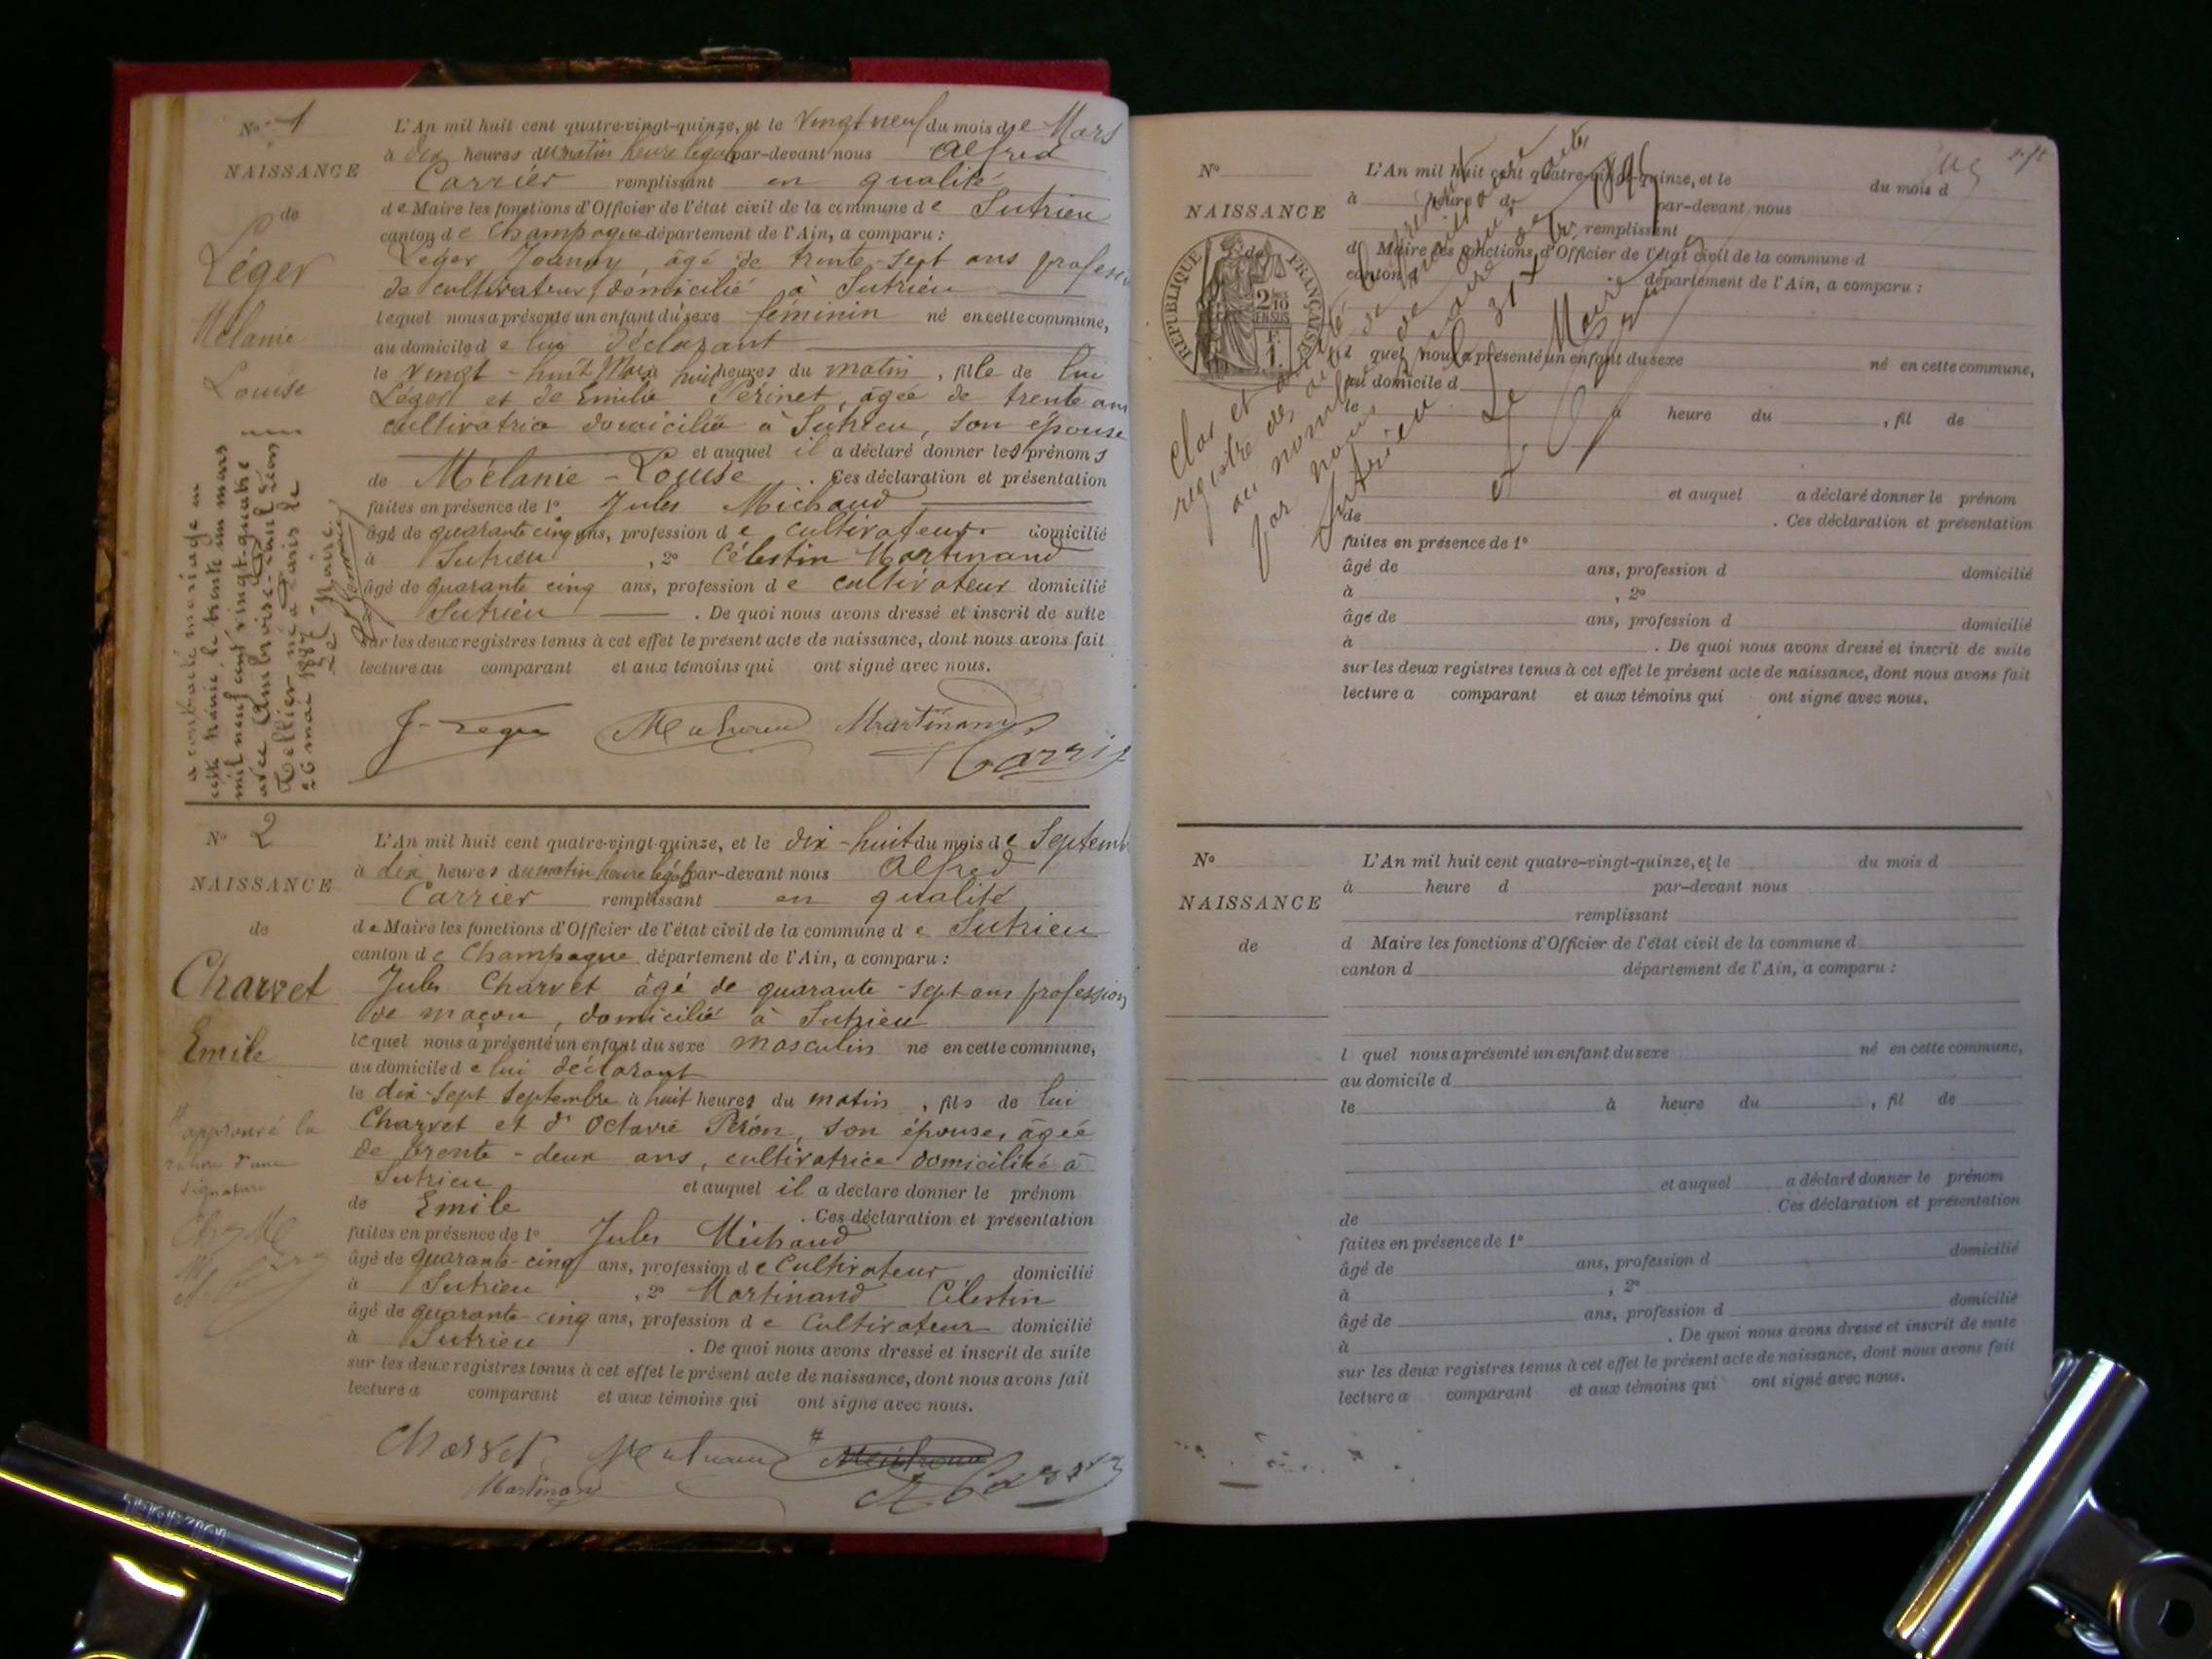 N° 1
NAISSANCE
de
Léger
Mélanie
Louise
a contracté mariage en
cette mairie le trente un mars
mil neuf cent vingt-quatre
avec Ambroise
Tellier né à Paris le
26 mai 1887
Le Maire
L'An mil huit cent quatre-vingt-quinze, et le vingt neuf du mois de Mars
à dix heures du matin heure légale par-devant nous Alfred
Carrier remplissant en qualité
de Maire les fonctions d'Officier de l'état civil de la commune de Sutrieu
canton de Champagne département de l'Ain, a comparu :
Léger Joanny, âgé de trente-sept ans profession
de cultivateur, domicilié à Sutrieu
lequel nous a présenté un enfant du sexe féminin né en cette commune,
au domicile de lui déclarant
le vingt-huit Mars huit heures du matin, fille de lui
Léger et de Emilie Périnet, âgée de trente ans
cultivatrice domiciliée à Sutrieu, son épouse
et auquel il a déclaré donner les prénoms
de Mélanie-Louise. Ces déclaration et présentation
faites en présence de 1° Jules Michaud
âgé de quarante cinq ans, profession de cultivateur domicilié
à Sutrieu, 2° Célestin Martinand
âgé de quarante cinq ans, profession de cultivateur domicilié
à Sutrieu. De quoi nous avons dressé et inscrit de suite
sur les deux registres tenus à cet effet le présent acte de naissance, dont nous avons fait
lecture au comparant et aux témoins qui ont signé avec nous.
J. Léger Michaud Martinand
Carrier
N° 2
NAISSANCE
de
Charvet
Emile
# approuvé la
rature d'une
signature
L'An mil huit cent quatre-vingt-quinze, et le dix-huit du mois de Septembre
à dix heures du matin heure légale par-devant nous Alfred
Carrier remplissant en qualité
de Maire les fonctions d'Officier de l'état civil de la commune de Sutrieu
canton de Champagne département de l'Ain, a comparu :
Jules Charvet âgé de quarante-sept ans profession
de maçon, domicilié à Sutrieu
lequel nous a présenté un enfant du sexe masculin né en cette commune,
au domicile de lui déclarant
le dix-sept Septembre à huit heures du matin, fils de lui
Charvet et d'Octavie Péron, son épouse, âgée
de trente-deux ans, cultivatrice domiciliée à
Sutrieu et auquel il a déclaré donner le prénom
de Emile. Ces déclaration et présentation
faites en présence de 1° Jules Michaud
âgé de quarante-cinq ans, profession de Cultivateur domicilié
à Sutrieu, 2° Martinand Célestin
âgé de quarante cinq ans, profession de Cultivateur domicilié
à Sutrieu. De quoi nous avons dressé et inscrit de suite
sur les deux registres tenus à cet effet le présent acte de naissance, dont nous avons fait
lecture a comparant et aux témoins qui ont signé avec nous.
Charvet Michaud # Michaud
Martinand A. Carrier
N°
NAISSANCE
de
RÉPUBLIQUE FRANÇAISE
2/10
EN SUS
1 F.
L'An mil huit cent quatre-vingt-quinze, et le du mois d
à heure d par-devant nous
remplissant
d Maire les fonctions d'Officier de l'état civil de la commune d
canton d département de l'Ain, a comparu :
l quel nous a présenté un enfant du sexe né en cette commune,
au domicile d
le à heure du , fil de
et auquel a déclaré donner le prénom
de . Ces déclaration et présentation
faites en présence de 1°
âgé de ans, profession d domicilié
à , 2°
âgé de ans, profession d domicilié
à . De quoi nous avons dressé et inscrit de suite
sur les deux registres tenus à cet effet le présent acte de naissance, dont nous avons fait
lecture a comparant et aux témoins qui ont signé avec nous.
Clos et arrêté le présent
registre des actes de naissance
au nombre de deux
par nous maire de
Sutrieu le 31 Xbre 1895
Le Maire
N°
NAISSANCE
de
L'An mil huit cent quatre-vingt-quinze, et le du mois d
à heure d par-devant nous
remplissant
d Maire les fonctions d'Officier de l'état civil de la commune d
canton d département de l'Ain, a comparu :
l quel nous a présenté un enfant du sexe né en cette commune,
au domicile d
le à heure du , fil de
et auquel a déclaré donner le prénom
de . Ces déclaration et présentation
faites en présence de 1°
âgé de ans, profession d domicilié
à , 2°
âgé de ans, profession d domicilié
à . De quoi nous avons dressé et inscrit de suite
sur les deux registres tenus à cet effet le présent acte de naissance, dont nous avons fait
lecture a comparant et aux témoins qui ont signé avec nous.